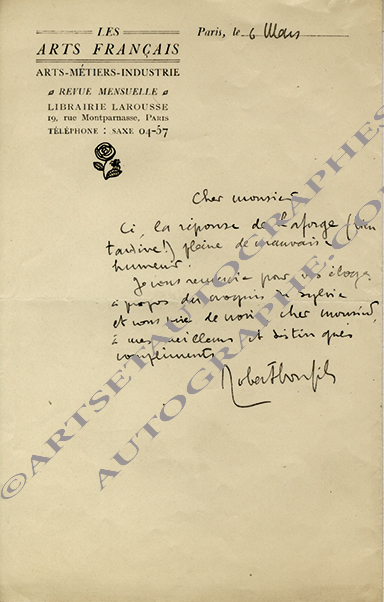 LES
ARTS FRANÇAIS
ARTS-MÉTIERS-INDUSTRIE
REVUE MENSUELLE
LIBRAIRIE LAROUSSE
19, rue Montparnasse, PARIS
TÉLÉPHONE : SAXE 04-57
Paris, le 6 Mars
Cher monsieur
Ci, la réponse de Laforge (bien
tardive!) pleine de mauvaise
humeur.
Je vous remercie pour vos éloges
à propos du croquis de Sylvie
et vous prie de croire, cher monsieur,
à mes meilleurs et distingués
compliments
Robert Bonfils
©ARTSETAUTOGRAPHES
AUTOGRAPHE.COM